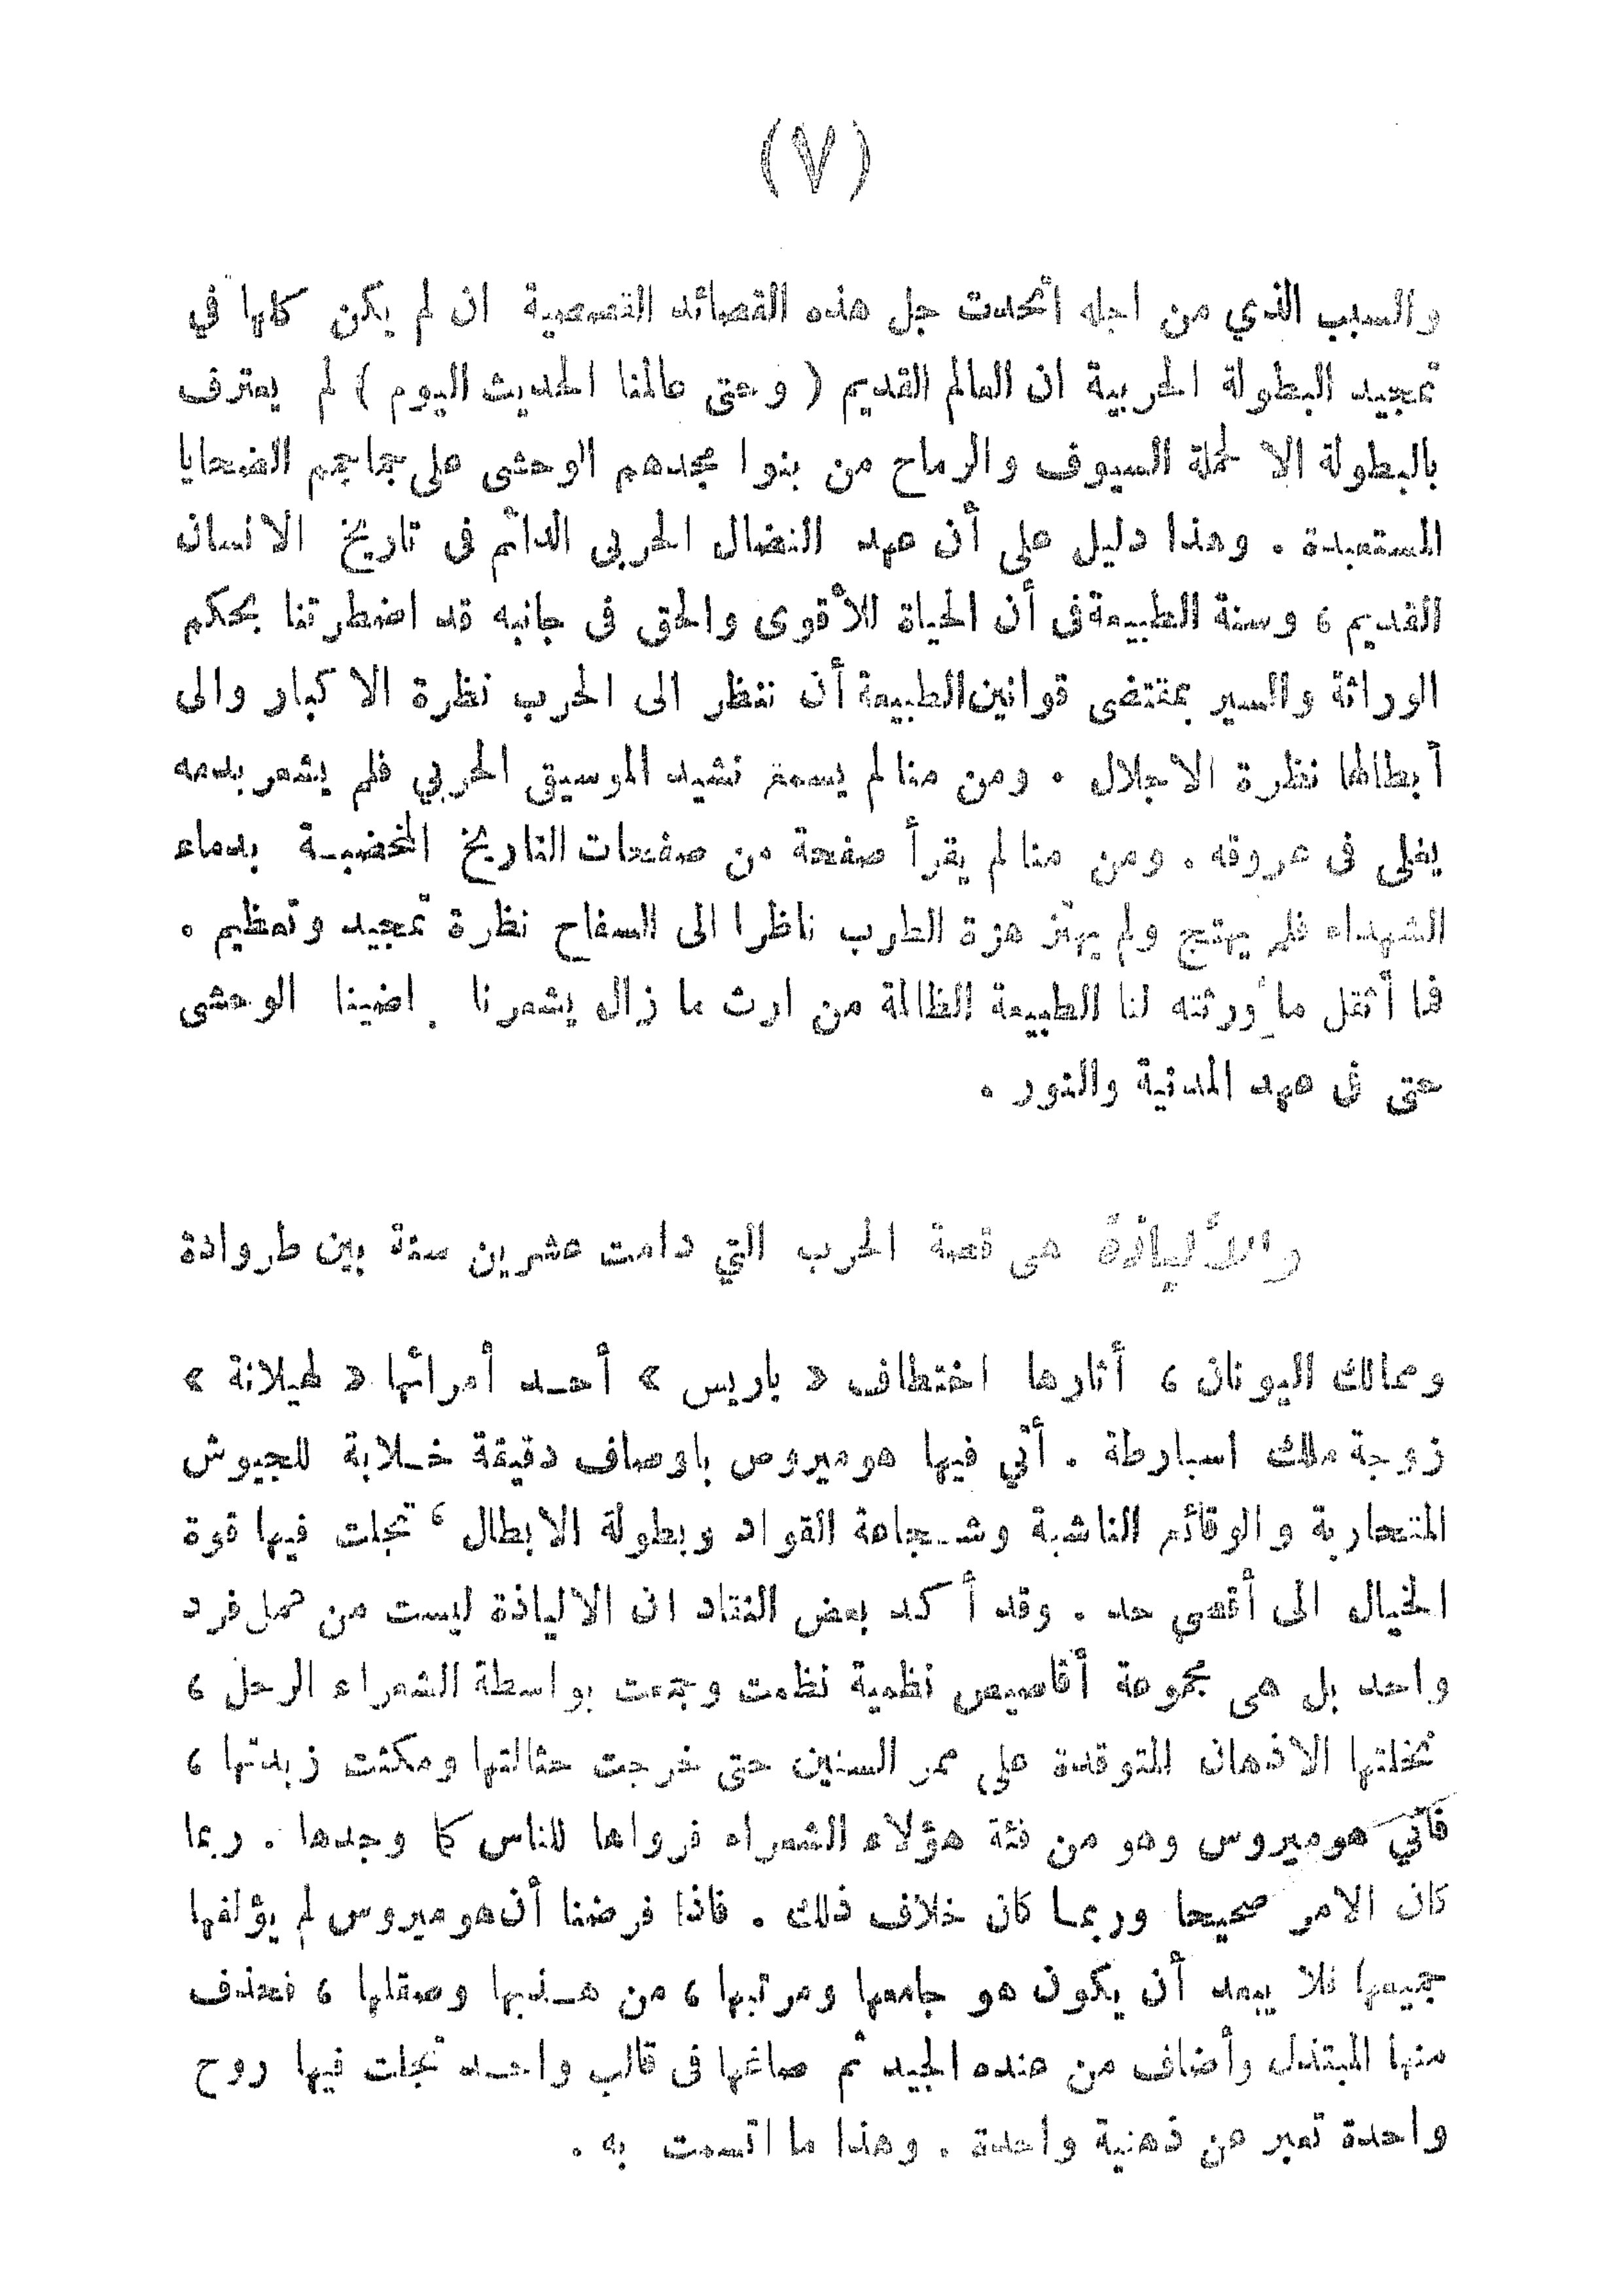 (٧)
والسبب الذي من اجله اتحدت جل هذه القصائد القصصية ان لم يكن كلها في
تمجيد البطولة الحربية ان العالم القديم ( وحتى عالمنا الحديث اليوم ) لم يعترف
بالبطولة الا لحملة السيوف والرماح من بنوا مجدهم الوحشى على جماجم الضحايا
المستعبدة . وهذا دليل على أن عهد النضال الحربى الدائم فى تاريخ الانسان
القديم ، وسنة الطبيعة فى أن الحياة للأقوى والحق فى جانبه قد اضطرتنا بحكم
الوراثة والسير بمقتضى قوانين الطبيعة أن ننظر الى الحرب نظرة الاكبار والى
أبطالها نظرة الاجلال . ومن منا لم يسمع نشيد الموسيقى الحربي فلم يشعر بدمه
يغلى فى عروقه . ومن منا لم يقرأ صفحة من صفحات التاريخ المخضبة بدماء
الشهداء فلم يهتج ولم يهتز هزة الطرب ناظرا الى السفاح نظرة تمجيد وتعظيم .
فما أثقل ما أورثته لنا الطبيعة الظالمة من ارث ما زال يشعرنا بماضينا الوحشى
حتى فى عهد المدنية والنور .
والألياذة هى قصة الحرب التي دامت عشرين سنة بين طروادة
وممالك اليونان ، أثارها اختطاف « باريس » أحد أمرائها « لهيلانة »
زوجة ملك اسبارطة . أتي فيها هوميروس باوصاف دقيقة خلابة للجيوش
المتحاربة والوقائع الناشبة وشجاعة القواد وبطولة الابطال ، تجلت فيها قوة
الخيال الى أقصى حد . وقد أكد بعض النقاد ان الالياذة ليست من عمل فرد
واحد بل هى مجموعة أقاصيص نظمية نظمت وجمعت بواسطة الشعراء الرحل ،
نخلتها الاذهان المتوقدة على ممر السنين حتى خرجت حثالتها ومكثت زبدتها ،
فأتي هوميروس وهو من فئة هؤلاء الشعراء فرواها للناس كما وجدها . ربما
كان الامر صحيحا وربما كان خلاف ذلك . فاذا فرضنا أن هوميروس لم يؤلفها
جميعها فلا يبعد أن يكون هو جامعها ومرتبها ، من هذبها وصقلها ، فحذف
منها المبتذل وأضاف من عنده الجيد ثم صاغها فى قالب واحد تجلت فيها روح
واحدة تعبر عن ذهنية واحدة . وهذا ما اتسمت به .